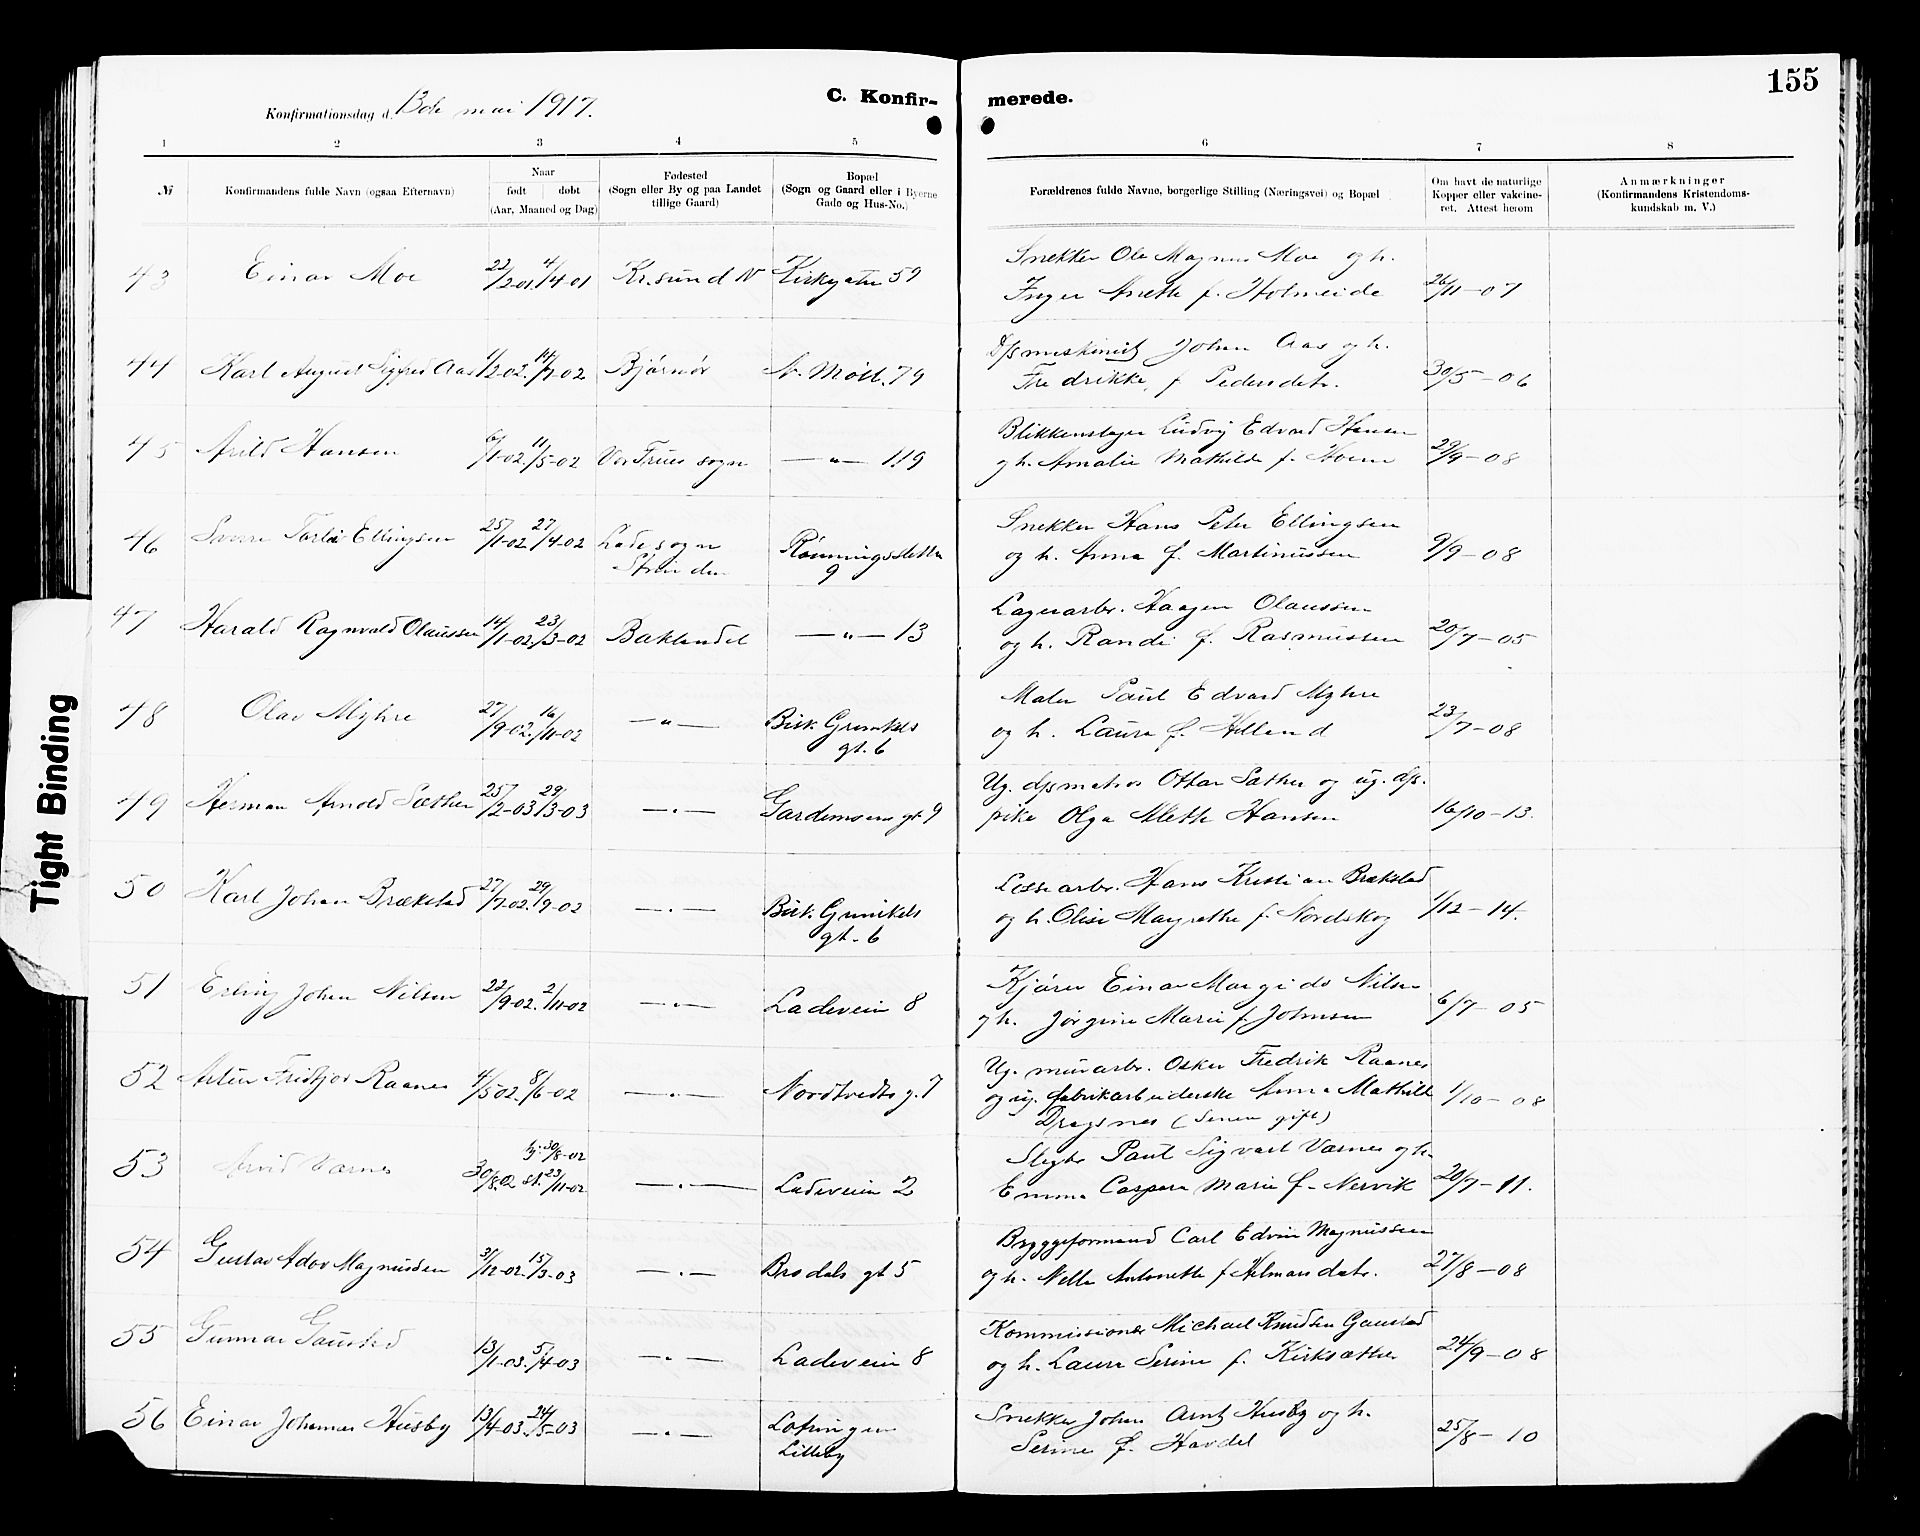 155
Konfirmationsdag d. 13de mai 1917.
C. Konfir- merede.
1 2 3 4 5 6 7 8
№
Konfirmandens fulde Navn (ogsaa Efternavn)
Naar
født døbt
(Aar, Maaned og Dag)
Fødested
(Sogn eller By og paa Landet
tillige Gaard)
Bopæl
(Sogn og Gaard eller i Byerne
Gade og Hus-No.)
Forældrenes fulde Navne, borgerlige Stilling (Næringsvei) og Bopæl
Om havt de naturlige
Kopper eller vakcine-
ret. Attest herom
Anmærkninger
(Konfirmandens Kristendoms-
kundskab m. V.)
Snekker Ole Magnus Moe og h.
43 Einar Moe 22/2-01. 4/4-01 Kr.sund N Kirkegaten 59
Inger Anette f. Holmeide 26/11-07
Dpsmaskinist Johan Aas og h.
44 Karl August Sigfred Aas 1/2-02. 14/7-02 Bjørnør N. Møll. 79
Fredrikke, f. Pedersdatr. 30/5-06
Blikkenslager Ludvig Edvard Hansen
45 Arild Hansen 6/1-02. 11/5-02 Vor Frues sogn —"— 119
og h. Amalie Mathilde f. 29/9-08
Snekker Hans Peter Ellingsen
46 Sverre Ellingsen 25/1-02. 27/4-02 Lade sogn
Strinden
Rønningsletten
9
og h. Anna f. Martinussen 9/9-08
Lagerarbr. Haagen Olaussen
47 Harald Ragnvald Olaussen 14/1-02. 23/3-02 Baklandet —"— 13
og h. Randi f. Rasmussen 20/7-05
Maler Paul Edvard Myhre
48 Olav Myhre 27/9-02. 16/11-02 —"— Bisk. Grimkels
gt. 6
og h. Laura f. 23/7-08
Ug. dpsmatros Ottar Sæther og ug. dps.
49 Herman Arnold Sæther 25/2-03 29/3-03 —"— Gardemoens gt 9
pike Olga Alette Hansen 16/10-13.
Lossearbr. Hans Kristian Brækstad
50 Karl Johan Brækstad 27/7-02. 29/9-02 —"— Bisk. Grimkels
gt. 6
og h. Olise Margrethe f. Nordskog 1/12-14.
Kjører Einar Nilsen
51 Erling Johan Nilsen 22/9-02. 2/11-02 —"— Ladeveien 8
og h. Jørgine Marie f. Johnsen 6/7-05
Ug. murarbr. Oskar Fredrik Raanes
52 Artur Fridtjov Raanes 4/5 02. 8/6-02 —"— Nordtvedts g. 7
og ug. fabrikarbeiderske Anna Mathilde 1/10-08
Dragsnes (Senere gift)
53 Arvid Værnes 30/8.02 hj. 30/8-02
st. 23/11-02 —"— Ladeveien 2
Paul Sigvart Værnes og h.
Emma Caspara Marie f. Nervik 20/7-11.
Bryggeformand Carl Edvin Magnussen
54 Gustav Adov Magnussen 31/12-02. 15/3-03 —"— Brodals gt 5
og h. Nelle Antonette f. Hilmarsdatr. 27/8-08
Kommissionær Michael Knudsen Gaustad
55 Gunnar Gaustad 13/1-03. 5/4-03 —"— Ladeveien 8
og h. Laura Serine f. Kirksæther 24/9-08
Snekker Johan Arnt Husby og h.
56 Einar Johannes Husby 13/4-03. 24/5-03 —"— Lofringen
Lilleby
Serine f. Havdel 25/8-10
Tight Binding